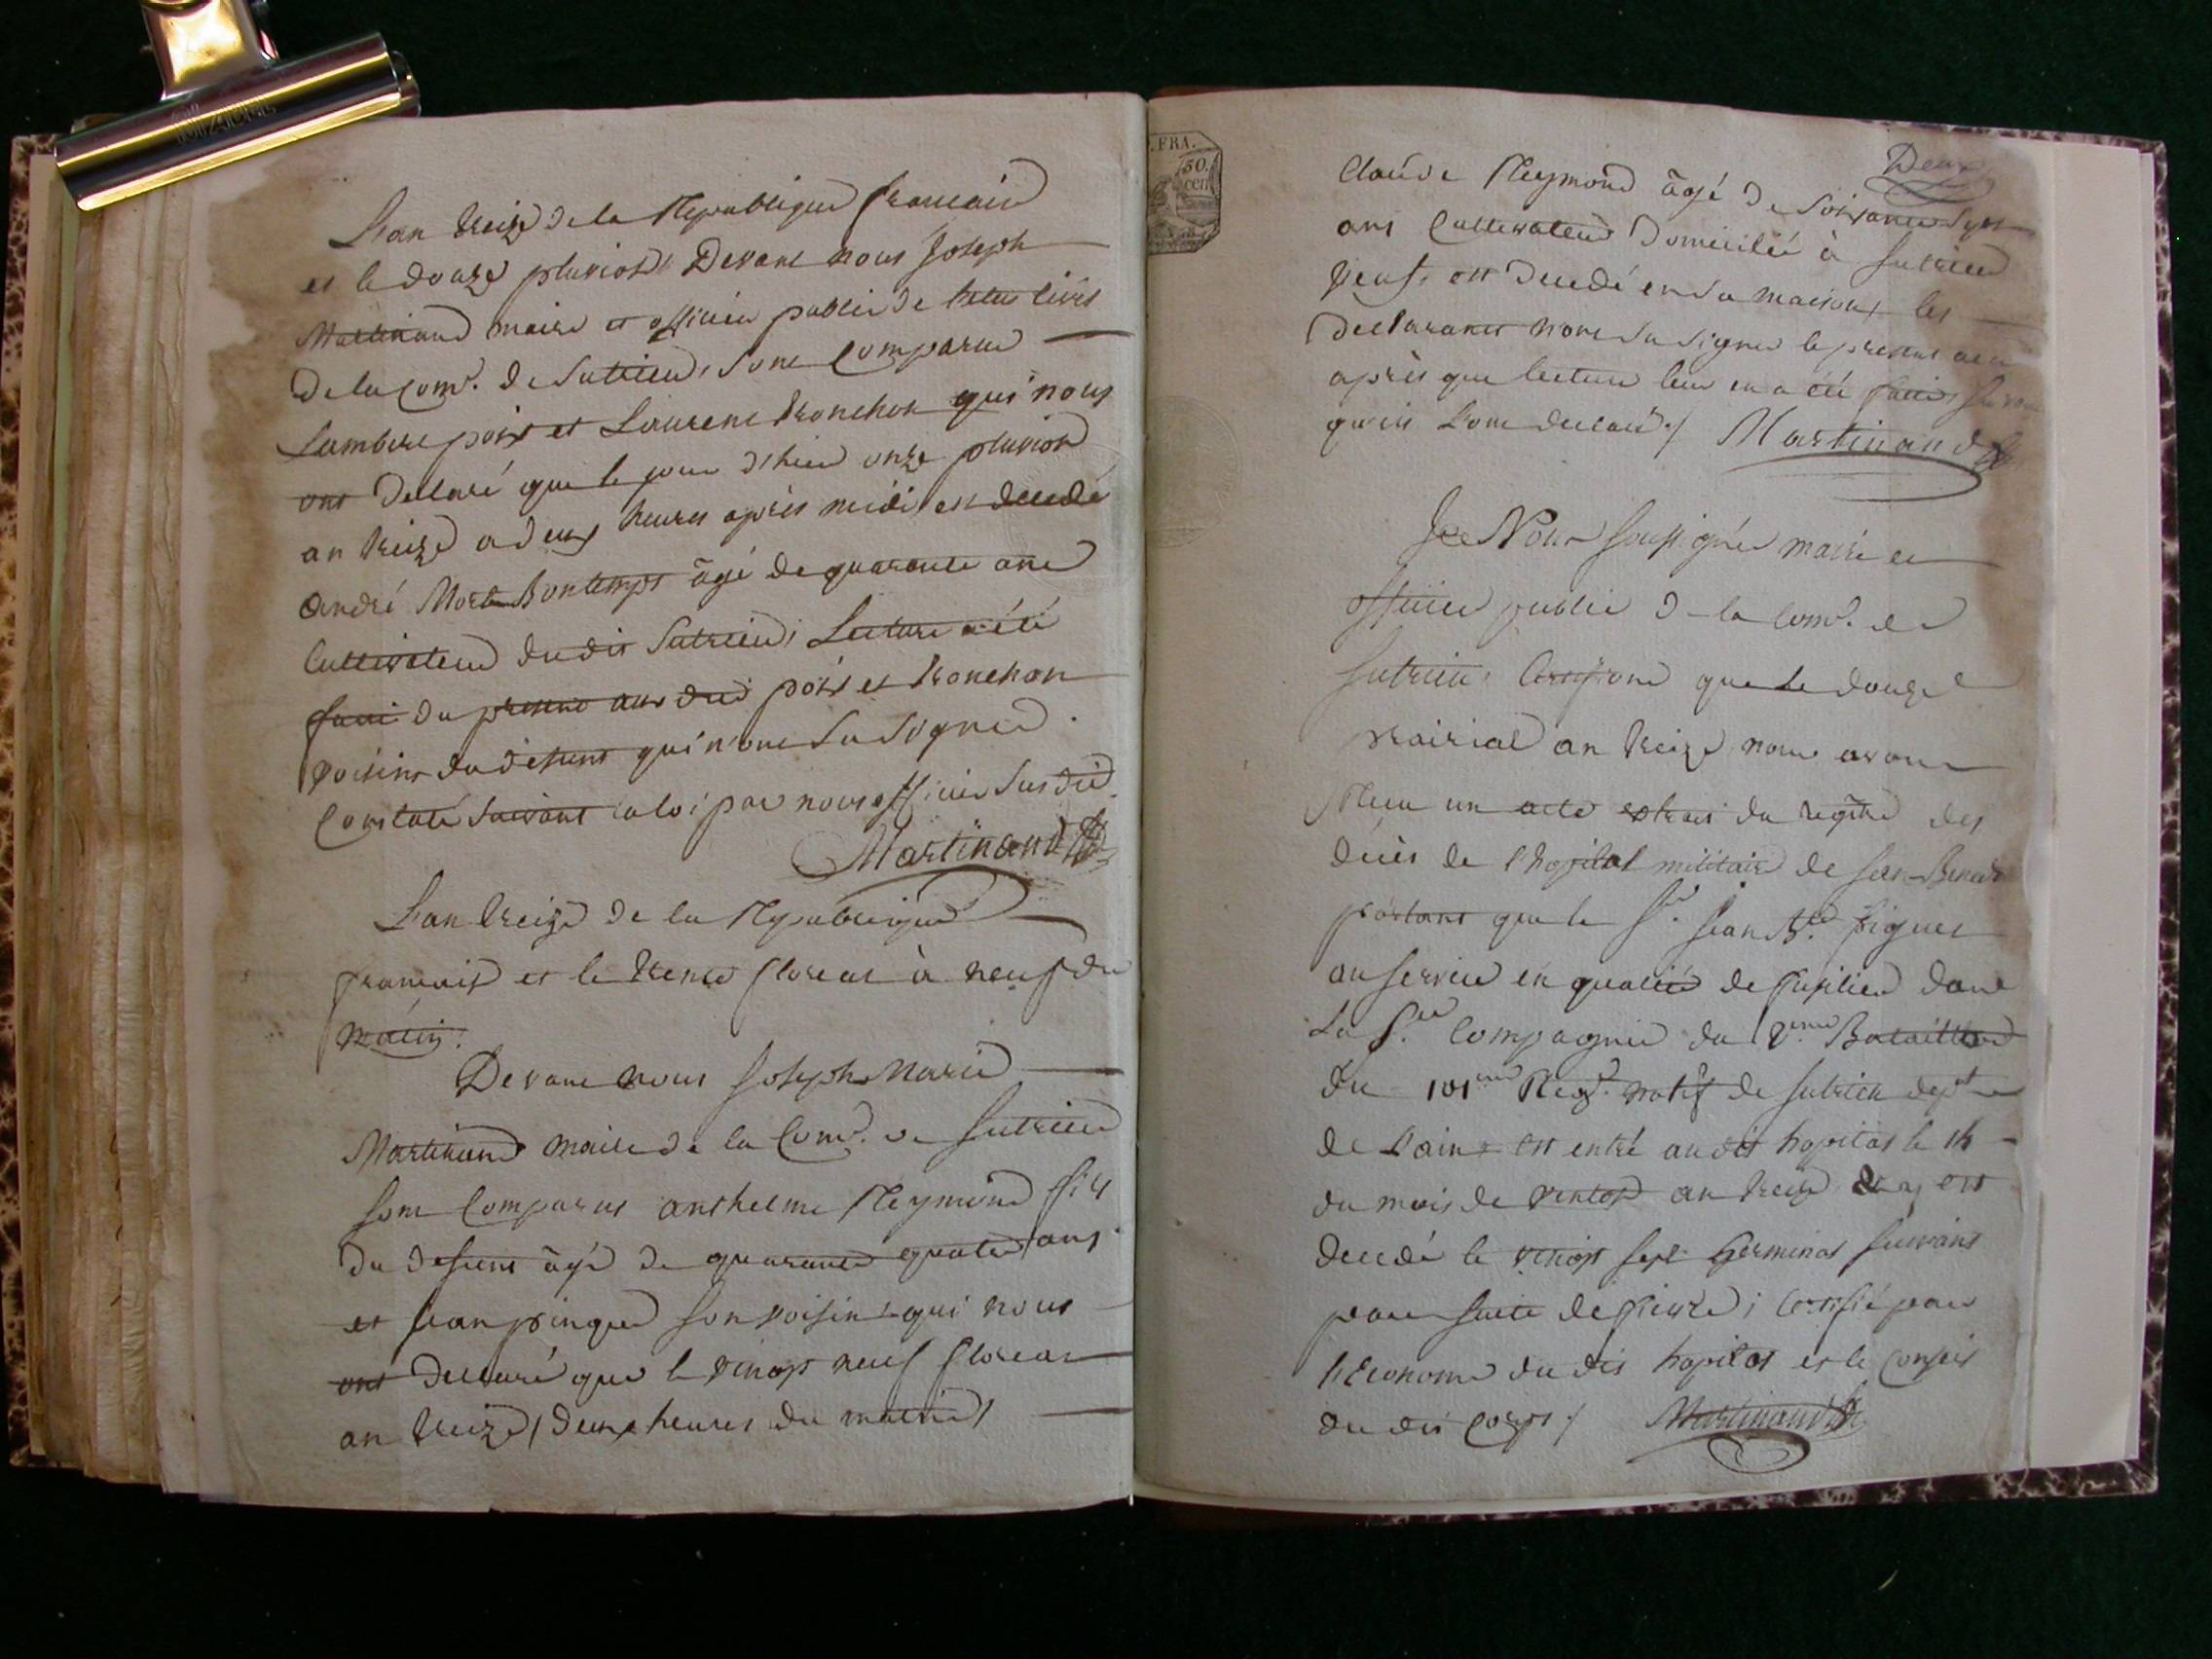 L'an treize de la Republique francaise
et le douze pluviose Devant nous Joseph
Martinand maire et officier public de l'etat civil
de la Com.e de Sutrieu, sont Comparus
Lambert poix et Laurent tronchon qui nous
ont declaré que le jour d'hier onze pluviose
an treize a deux heures après midi est decedé
andré Bontemps âgé de quarante ans
Cultivateur du dit Sutrieu, Lecture a été
faite du present aux dits poix et tronchon
voisins du defunt qui n'ont su signer.
Constaté suivant la loi par nous officier susdit
Martinand
L'an treize de la Republique
francaise et le trente floreal à neuf du
matin.
Devant nous Joseph Marie
Martinand maire de la Com.e de Sutrieu
sont Comparus anthelme Reymond fils
du defunt âgé de quarante quatre ans
et jean pinque son voisin qui nous
ont declaré que le vingt neuf floreal
an treize, deux heures du matin,
.FRA.
50.
cen
Deux
Claude Reymond âgé de soixante sept
ans Cultivateur domicilié à Sutrieu
veuf, est decedé en sa maison, les
declarants n'ont su signer le present acte
après que lecture leur en a été faite
qu'ils l'ont declaré ./ Martinand
Nous soussigné maire et
officier public de la Com.e de
Sutrieu, Certifions que le douze
prairial an treize nous avons
Reçu un acte extrait du regître des
décès de l'hopital militaire de
portant que le S.r Jean B.te
au service en qualité de fusilier dans
La Compagnie du 2.eme Bataillon
du 101.eme Reg.t natif de Sutrieu dep.t
de l'ain est entré au dit hopital le
du mois de ventose an treize et y est
decedé le vingt sept Germinal suivant
par suite de fievre; Certifié par
l'Econome du dit hopital et le Conseil
du dit Corps ./ Martinand